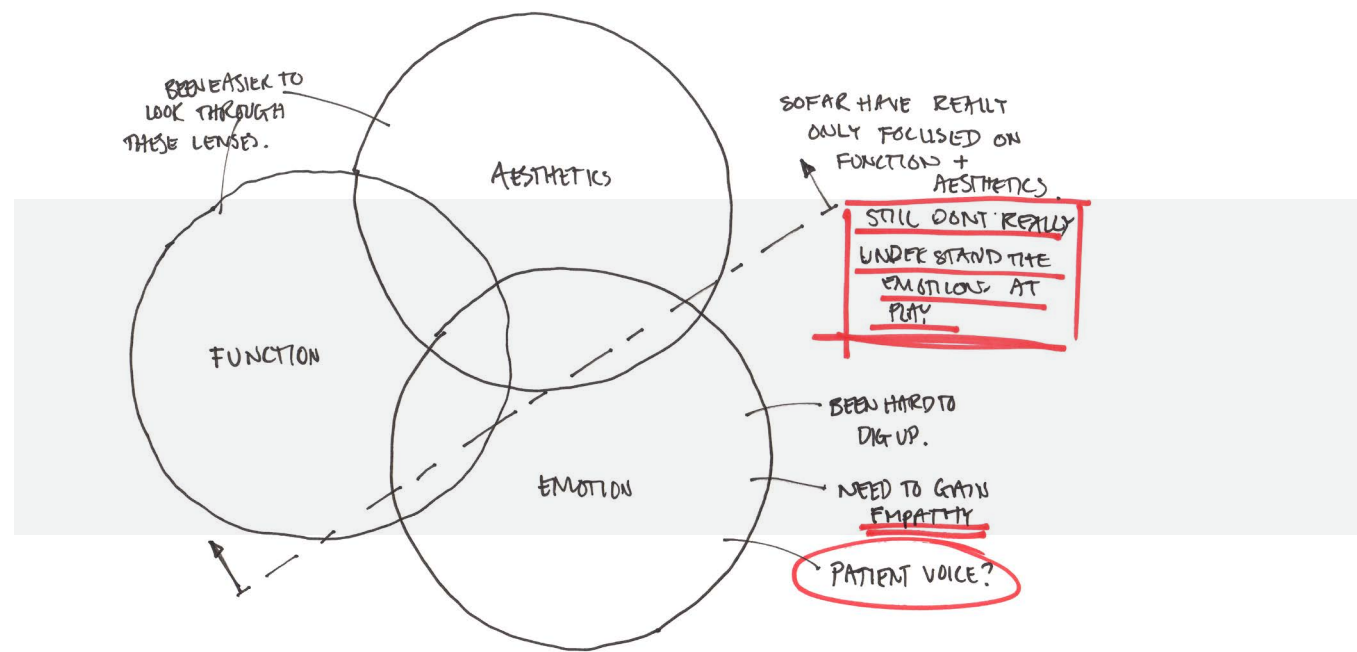 BEEN EASIER TO
LOOK THROUGH
THESE LENSES.
AESTHETICS
FUNCTION
EMOTION
SO FAR HAVE REALLY
ONLY FOCUSED ON
FUNCTION +
AESTHETICS.
STILL DONT REALLY
UNDERSTAND THE
EMOTIONS AT
PLAY
BEEN HARD TO
DIG UP.
NEED TO GAIN
EMPATHY
PATIENT VOICE?